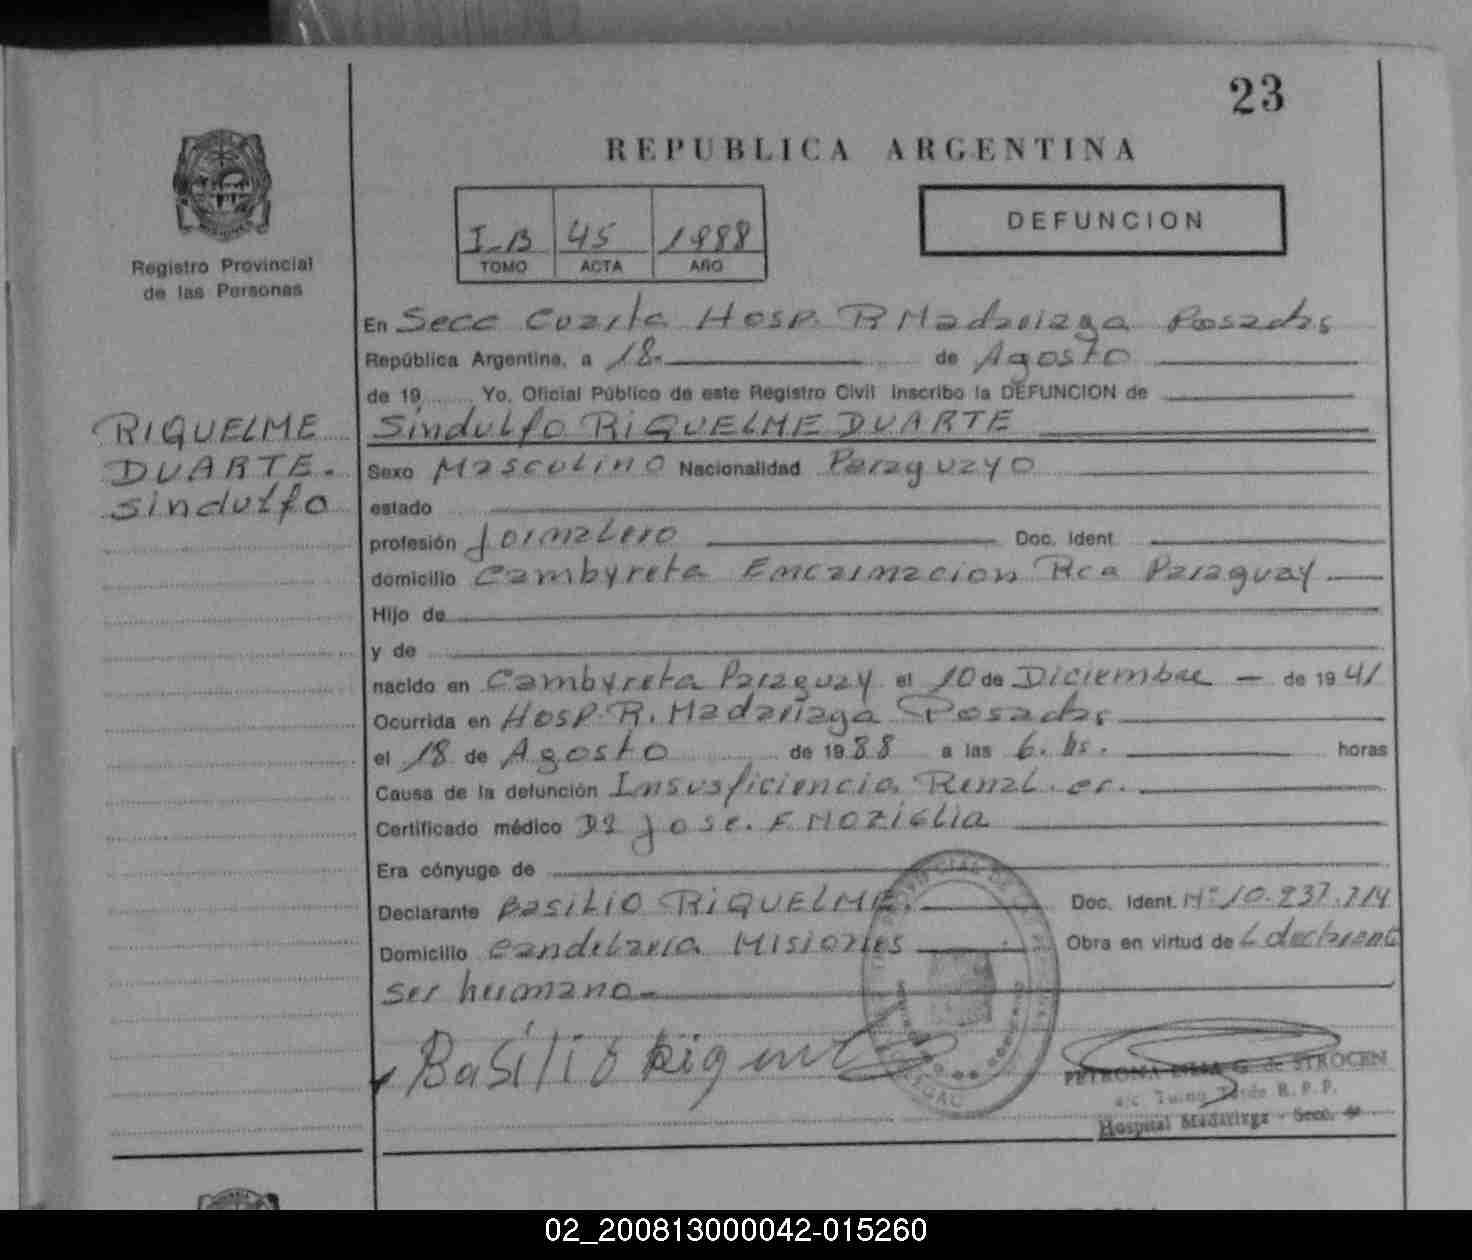 23
REPUBLICA ARGENTINA
I-B 45 1988
TOMO ACTA AÑO
DEFUNCION
Registro Provincial
de las Personas
RIQUELME
DUARTE.
Sindulfo
En Secc Cuarta Hosp. R Madariaga Posadas
República Argentina, a 18- de Agosto
de 19 Yo, Oficial Público de este Registro Civil inscribo la DEFUNCION de
Sindulfo RIQUELME DUARTE
Sexo Masculino Nacionalidad Paraguayo
estado
profesión Jornalero Doc. Ident.
domicilio Cambyreta Encarnacion Rca Paraguay
Hijo de
y de
nacido en Cambyreta Paraguay el 10 de Diciembre - de 1941
Ocurrida en Hosp. R. Madariaga Posadas
el 18 de Agosto de 1988 a las 6. hs. horas
Causa de la defunción Insusficiencia Renal. cr.
Certificado médico Dr Jose. F MOZIGLIA
Era cónyuge de
Declarante BASILIO RIQUELME. Doc. Ident. Nº 10.237.714
Domicilio Candelaria Misiones Obra en virtud de
ser humano-
Basilio
PETRONA G. de STROCEN
a/c Turno Tarde R. P. P.
Hospital Madariaga - Secc. 4ª
02_200813000042-015260